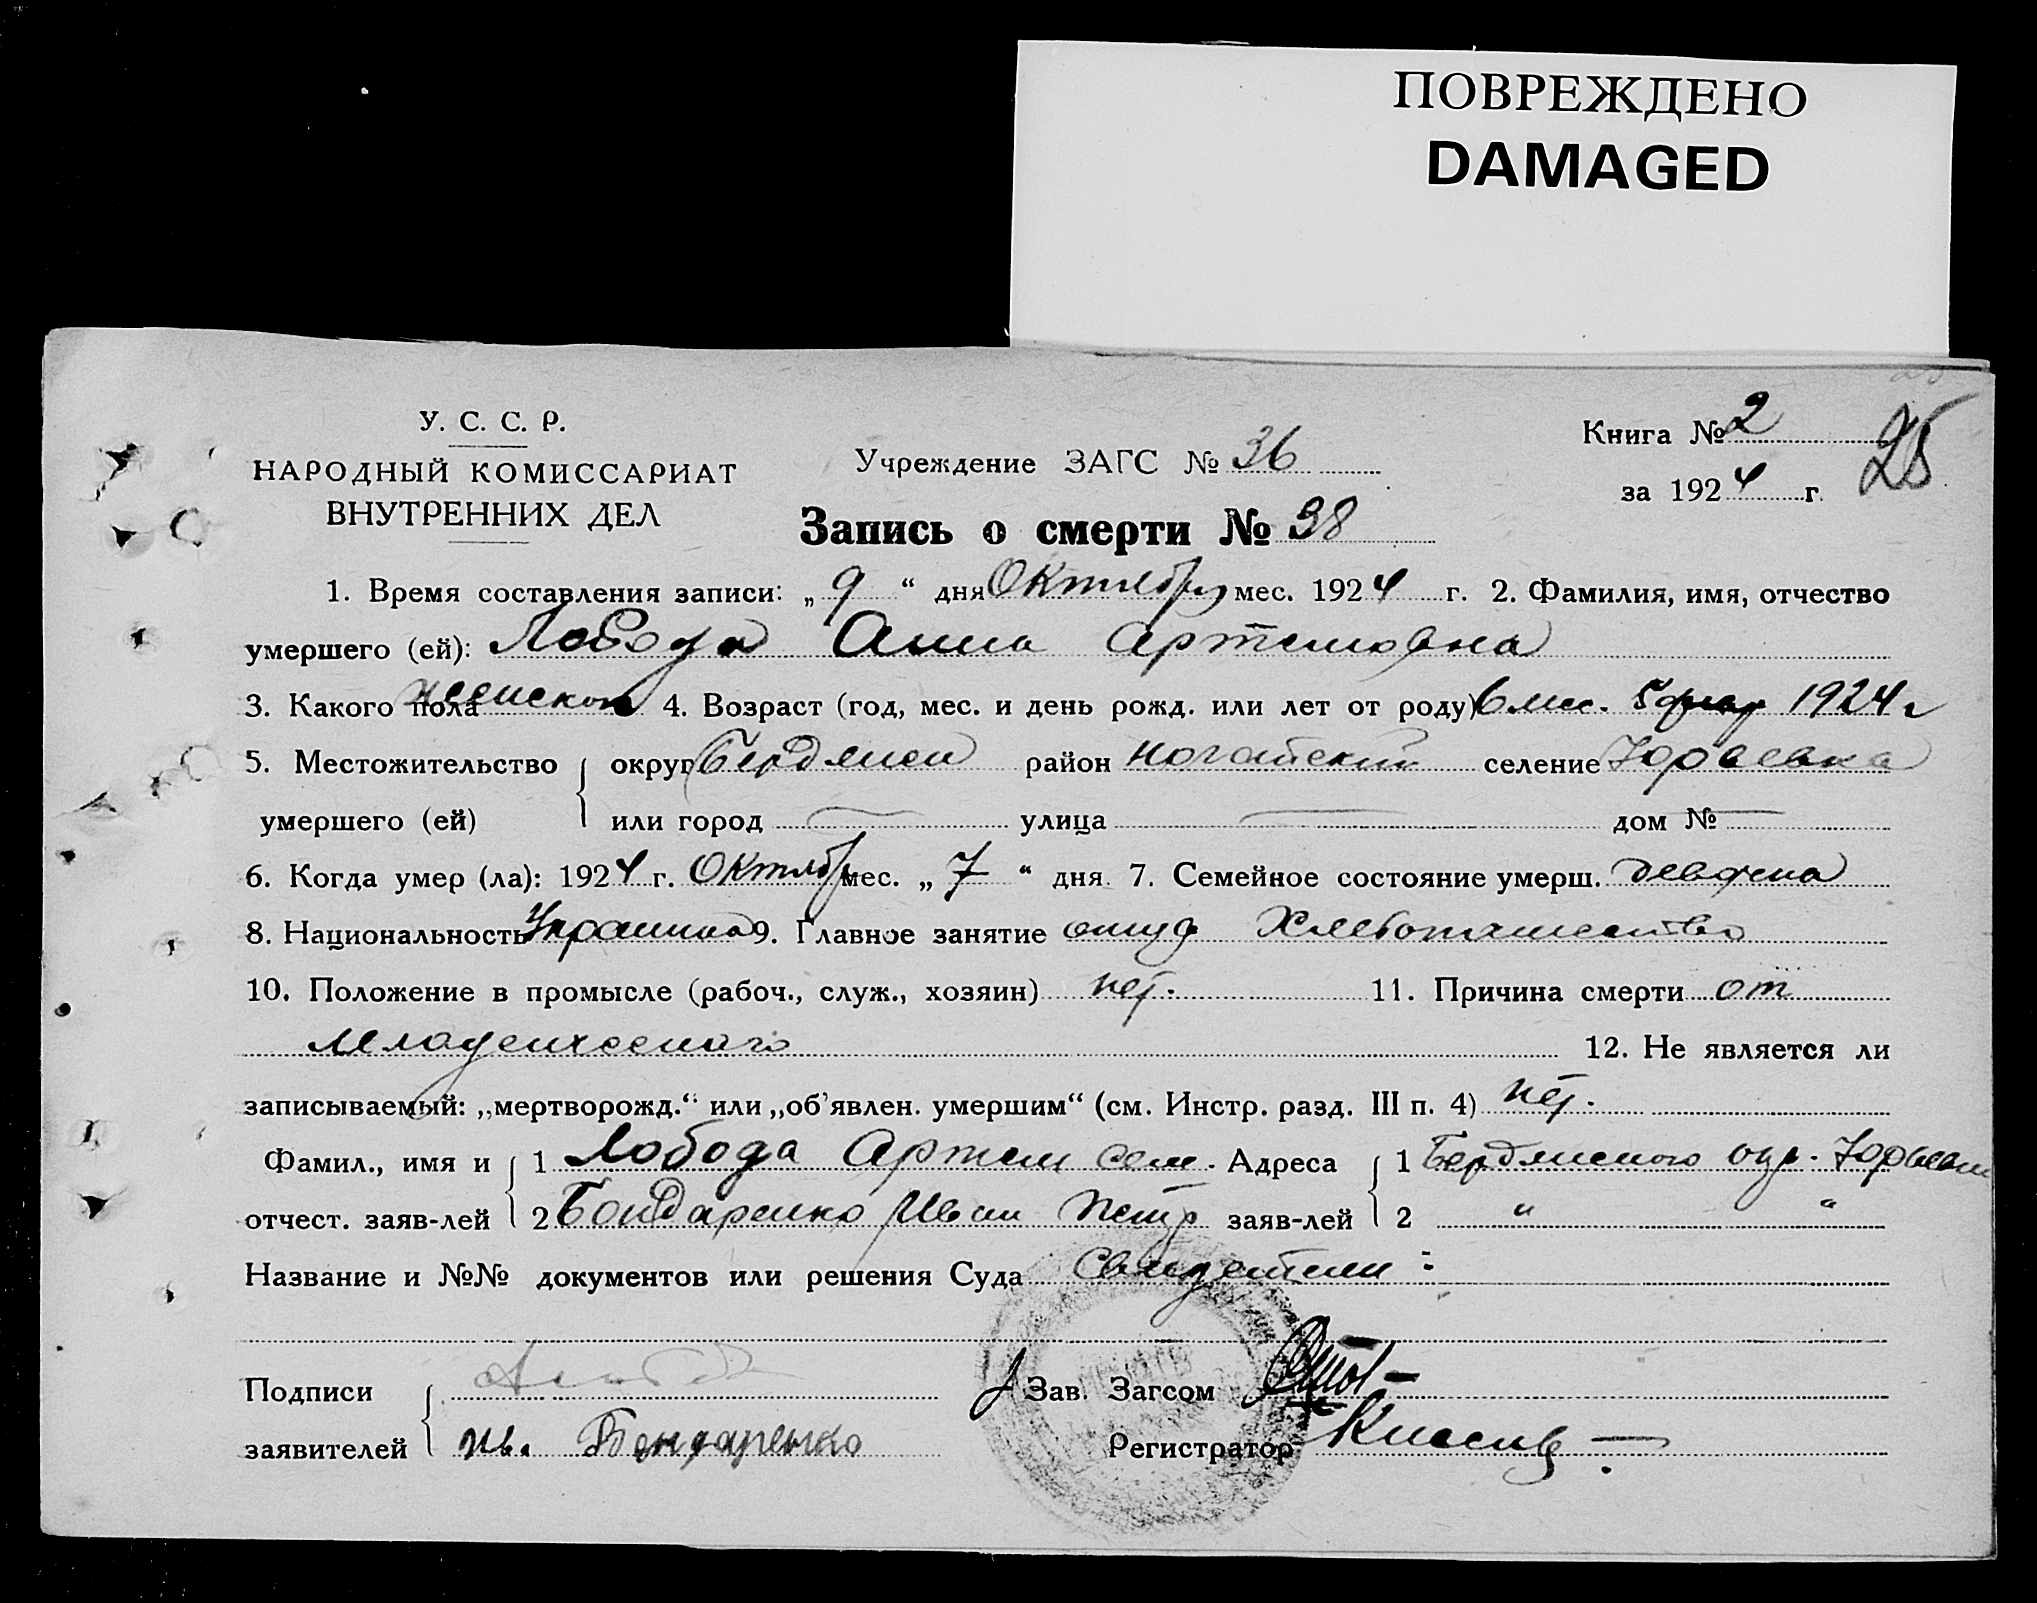 ПОВРЕЖДЕНО
DAMAGED
У. С. С. Р.
НАРОДНЫЙ КОМИССАРИАТ
ВНУТРЕННИХ ДЕЛ
Учреждение ЗАГС № 36
Книга № 2
за 1924 г.
25
Запись о смерти № 38
1. Время составления записи: „9“ дня Октября мес. 1924 г. 2. Фамилия, имя, отчество
умершего (ей): Лобода Анна Артемовна
3. Какого пола женского 4. Возраст (год, мес. и день рожд. или лет от роду) 6 мес. 1924 г
5. Местожительство округ Бердянский район Ногайский селение Юрьевка
умершего (ей) или город — улица — дом № —
6. Когда умер (ла): 1924 г. Октябр мес. „7“ дня. 7. Семейное состояние умерш.
8. Национальность Украинка 9. Главное занятие Хлебопашество
10. Положение в промысле (рабоч., служ., хозяин) нет. 11. Причина смерти от
Младенческого 12. Не является ли
записываемый: „мертворожд.“ или „об'явлен. умершим“ (см. Инстр. разд. III п. 4) нет.
Фамил., имя и 1 Лобода Артем Сем. Адреса 1 Бердянского окр.
отчест. заяв-лей 2 Бондаренко Иван Петр заяв-лей 2 " "
Название и №№ документов или решения Суда Свидетели :
Подписи Зав. Загсом
заявителей Ив. Бондаренко Регистратор